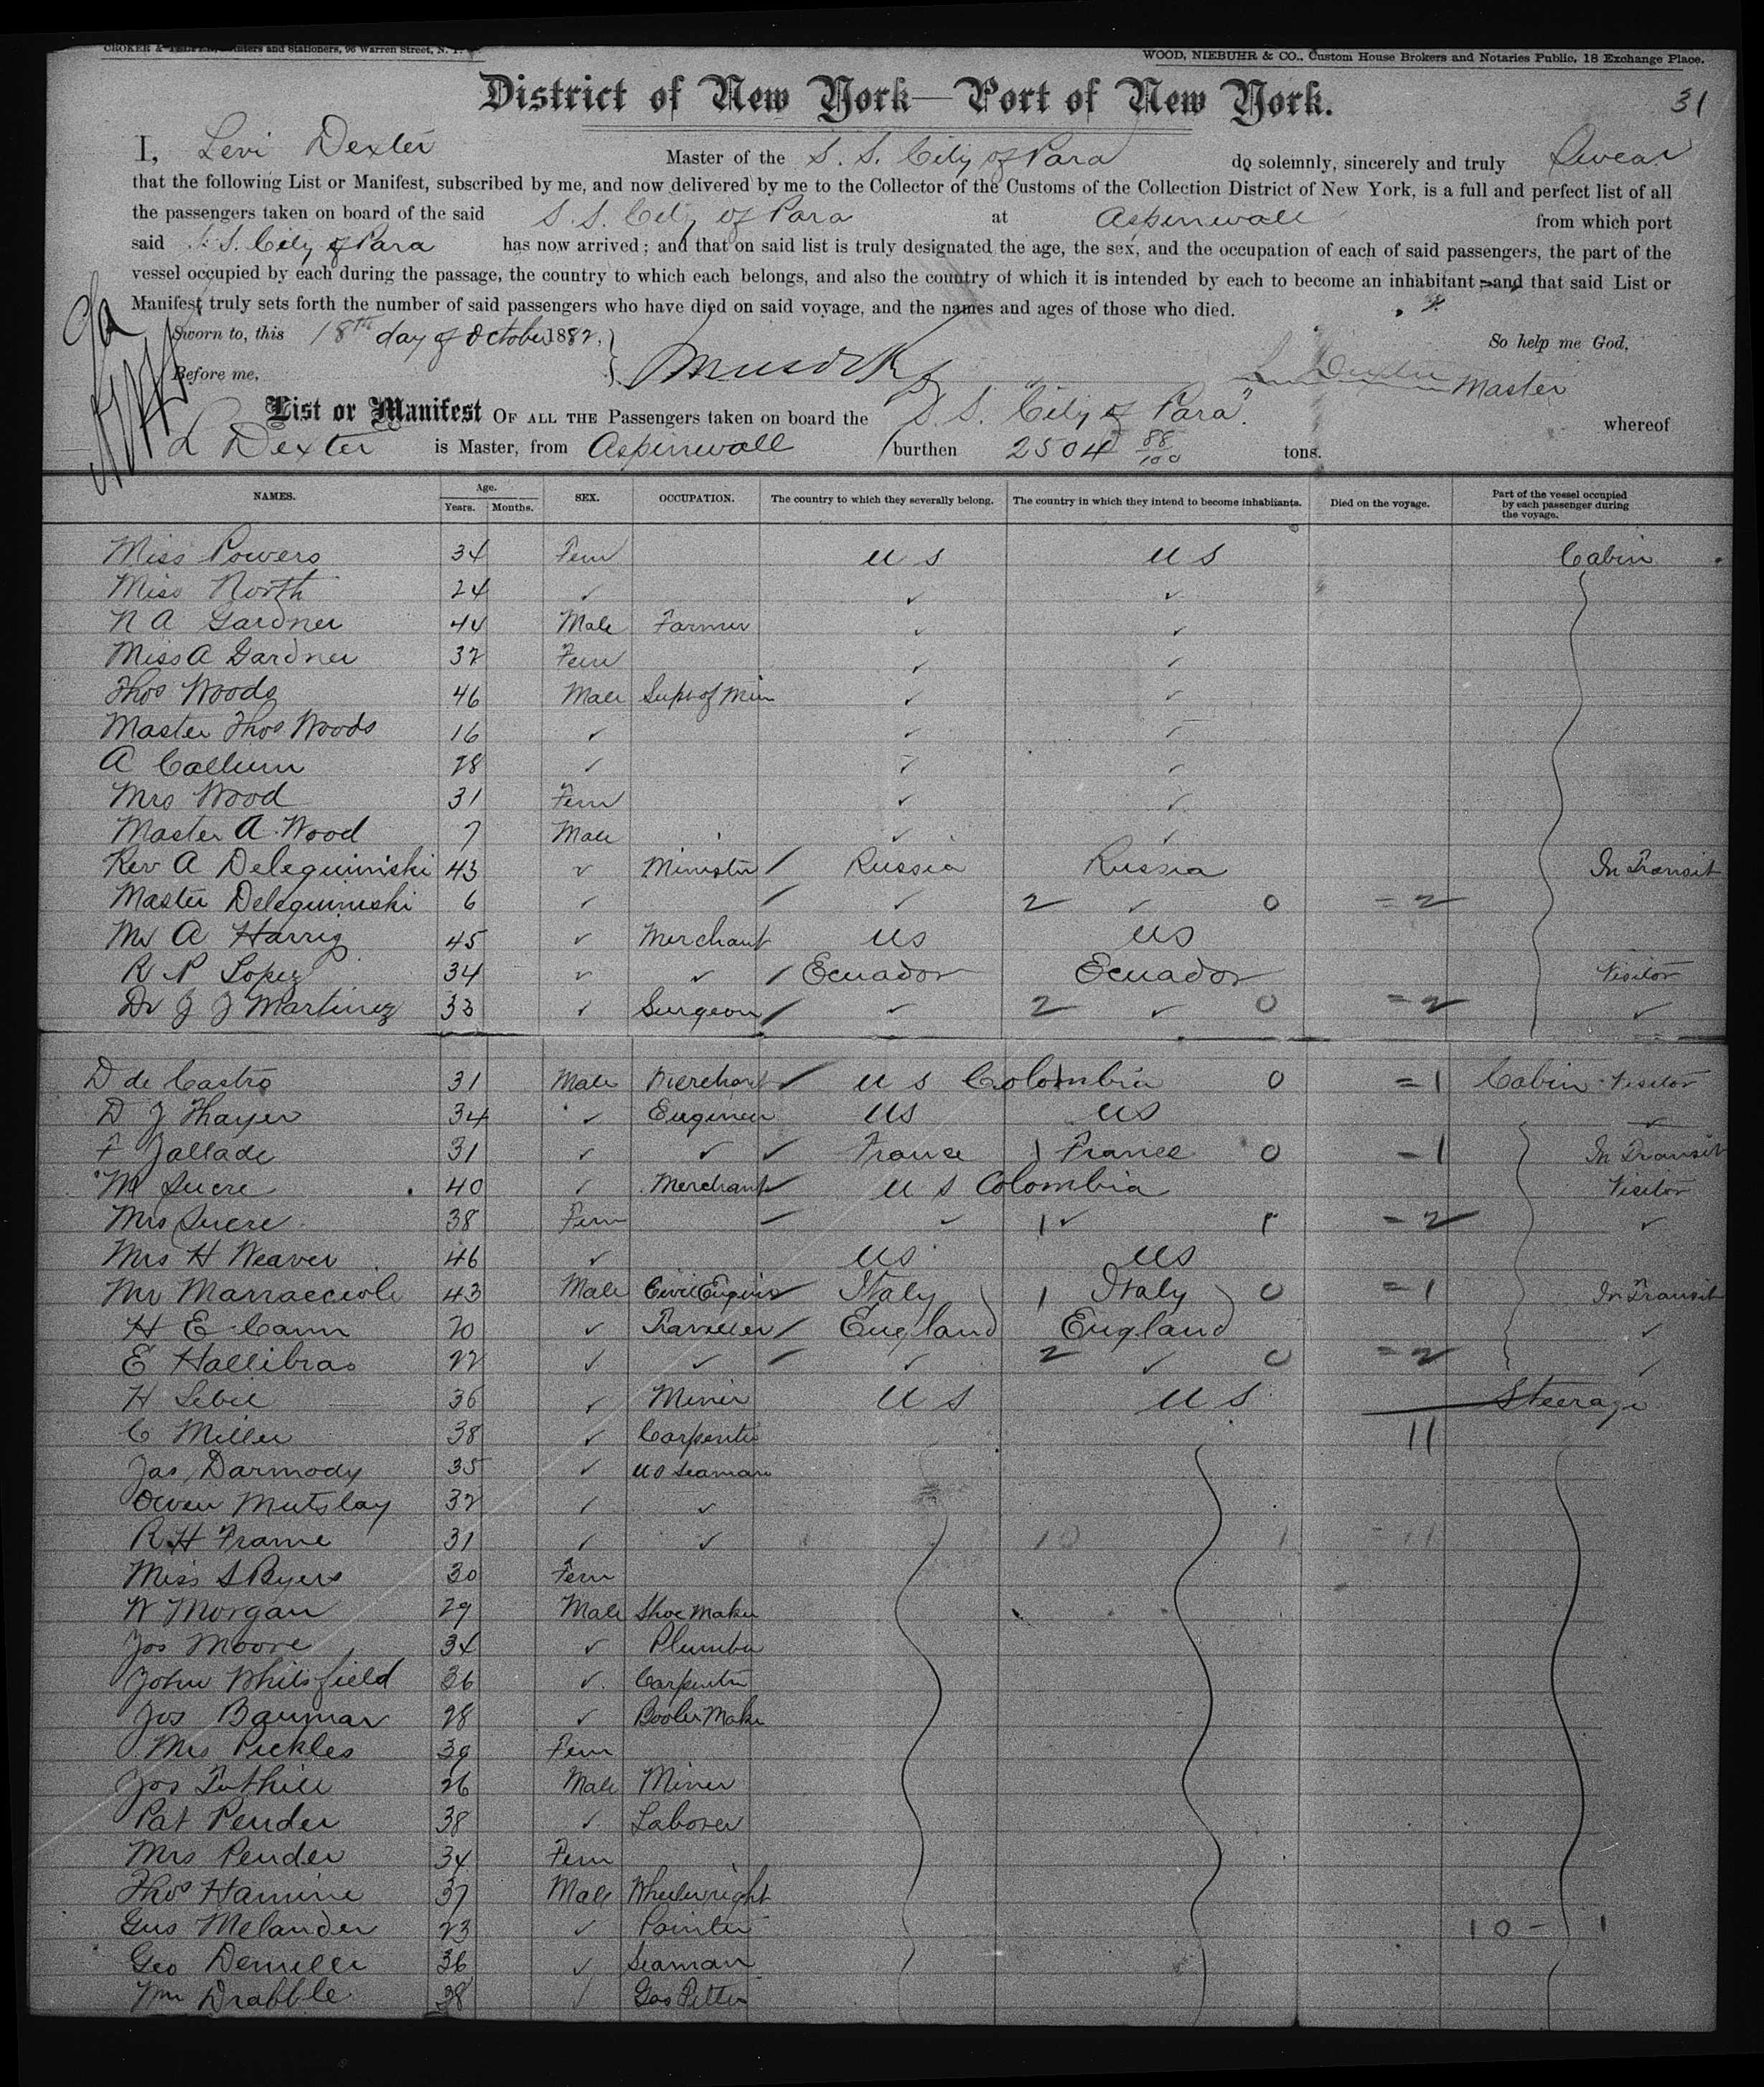 CROKER & TELFER, Printers and Stationers, 96 Warren Street, N. Y.
WOOD, NIEBUHR & CO., Custom House Brokers and Notaries Public, 18 Exchange Place.
District of New York—Port of New York.
31
I, Levi Dexter Master of the S. S. City of Para do solemnly, sincerely and truly Swear
that the following List or Manifest, subscribed by me, and now delivered by me to the Collector of the Customs of the Collection District of New York, is a full and perfect list of all
the passengers taken on board of the said S. S. City of Para at Aspinwall from which port
said S. S. City of Para has now arrived; and that on said list is truly designated the age, the sex, and the occupation of each of said passengers, the part of the
vessel occupied by each during the passage, the country to which each belongs, and also the country of which it is intended by each to become an inhabitant; and that said List or
Manifest truly sets forth the number of said passengers who have died on said voyage, and the names and ages of those who died.
Sworn to, this 18th day of October 1882, So help me God,
Before me, L Dexter Master
List or Manifest OF ALL THE Passengers taken on board the S. S. "City of Para" whereof
L Dexter is Master, from Aspinwall burthen 2504 88/100 tons.
NAMES. Age. Years. Months. SEX. OCCUPATION. The country to which they severally belong. The country in which they intend to become inhabitants. Died on the voyage. Part of the vessel occupied by each passenger during the voyage.
Miss Powers 34 Fem U S U S Cabin
Miss North 24 ✓ ✓ ✓
N A Gardner 44 Male Farmer ✓ ✓
Miss A Gardner 32 Fem ✓ ✓
Thos Woods 46 Male Supt of Min ✓ ✓
Master Thos Woods 16 ✓ ✓ ✓
A Callum 28 ✓ ✓ ✓
Mrs Wood 31 Fem ✓ ✓
Master A Wood 7 Male ✓ ✓
Rev A Delequiniski 43 ✓ Minister / Russia Russia In Transit
Master Delequiniski 6 ✓ / ✓ 2 ✓ 0 = 2
Mr A Harrig 45 ✓ Merchant US US
R N Lopez 34 ✓ ✓ / Ecuador Ecuador Visitor
Dr J J Martinez 33 ✓ Surgeon / ✓ 2 ✓ 0 = 2 ✓
D de Castro 31 Male Merchant ✓ U S Colombia 0 = 1 Cabin Visitor
D J Thayer 34 ✓ Engineer US US ✓
F Jallade 31 ✓ ✓ ✓ France 1 France 0 - 1 In Transit
M Sucre 40 ✓ Merchant ✓ U S Colombia Visitor
Mrs Sucre 38 Fem ✓ ✓ 1 ✓ 1 = 2 ✓
Mrs H Weaver 46 ✓ US US
Mr Marracciole 43 Male Civil Engin ✓ Italy 1 Italy 0 = 1 In Transit
H E Cann 20 ✓ Traveller / England England ✓
E Hallibras 22 ✓ ✓ / ✓ 2 ✓ 0 = 2 ✓
H Lebil 36 ✓ Miner U S U S Steerage
C Miller 38 ✓ Carpenter 11
Jas Darmody 35 ✓ US Seaman
Owen Mutslay 32 ✓ ✓
R H Frame 31 ✓ ✓ 10 1 11
Miss S Byers 30 Fem
W Morgan 29 Male Shoe Maker
Jos Moore 34 ✓ Plumber
John Whitsfield 36 ✓ Carpenter
Jos Baumar 28 ✓ Booler Maker
Mrs Pickles 39 Fem
Jos Tuthill 26 Male Miner
Pat Pender 38 ✓ Laborer
Mrs Pender 34 Fem
Thos Hamine 37 Male Wheelwright
Gus Melander 23 ✓ Painter 10 - 1
Geo Demelle 36 ✓ Seaman
Wm Drabble 38 ✓ Gas Fitter